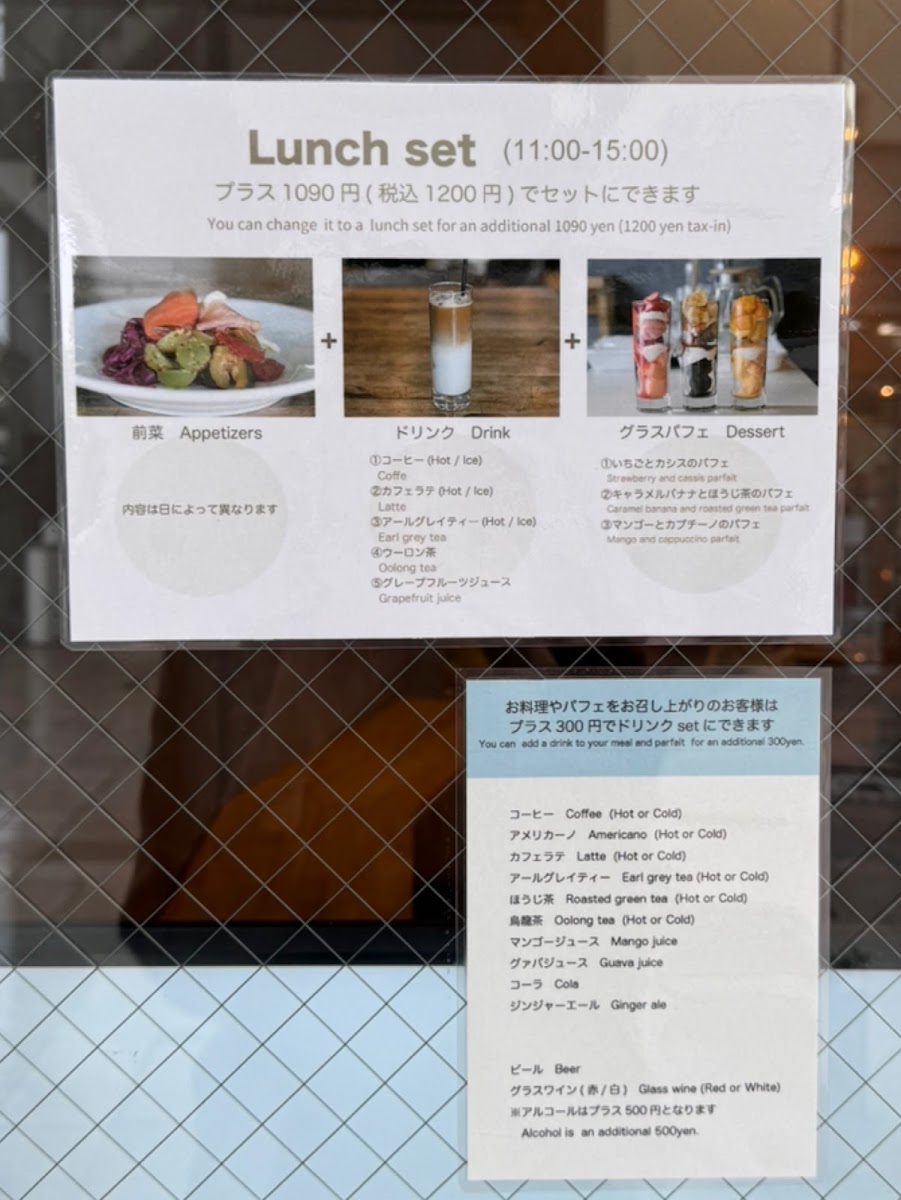 Lunch set (11:00-15:00)
プラス 1090 円 ( 税込 1200 円 ) でセットにできます
You can change it to a lunch set for an additional 1090 yen (1200 yen tax-in)
+
+
前菜 Appetizers
内容は日によって異なります
ドリンク Drink
①コーヒー (Hot / Ice)
Coffe
②カフェラテ (Hot / Ice)
Latte
③アールグレイティー (Hot / Ice)
Earl grey tea
④ウーロン茶
Oolong tea
⑤グレープフルーツジュース
Grapefruit juice
グラスパフェ Dessert
①いちごとカシスのパフェ
Strawberry and cassis parfait
②キャラメルバナナとほうじ茶のパフェ
Caramel banana and roasted green tea parfait
③マンゴーとカプチーノのパフェ
Mango and cappuccino parfait
お料理やパフェをお召し上がりのお客様は
プラス 300 円でドリンク set にできます
You can add a drink to your meal and parfait for an additional 300yen.
コーヒー Coffee (Hot or Cold)
アメリカーノ Americano (Hot or Cold)
カフェラテ Latte (Hot or Cold)
アールグレイティー Earl grey tea (Hot or Cold)
ほうじ茶 Roasted green tea (Hot or Cold)
烏龍茶 Oolong tea (Hot or Cold)
マンゴージュース Mango juice
グァバジュース Guava juice
コーラ Cola
ジンジャーエール Ginger ale
ビール Beer
グラスワイン ( 赤 / 白 ) Glass wine (Red or White)
※アルコールはプラス 500 円となります
Alcohol is an additional 500yen.